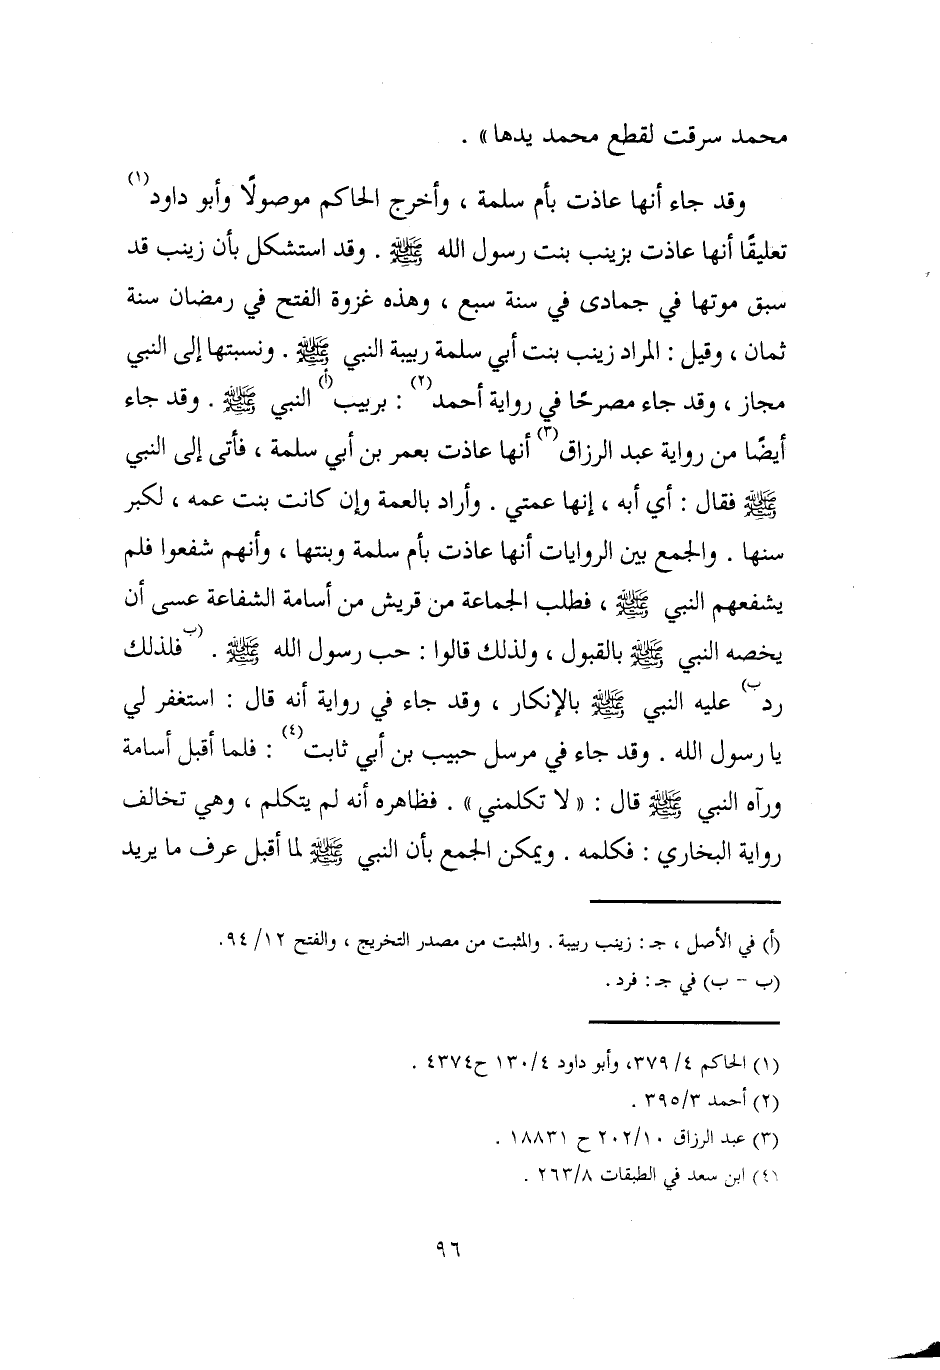 محمد سرقت لقطع محمد يدها» .
وقد جاء أنها عاذت بأم سلمة ، وأخرج الحاكم موصولًا وأبو داود(١)
تعليقًا أنها عاذت بزينب بنت رسول الله ﷺ . وقد استشكل بأن زينب قد
سبق موتها في جمادى في سنة سبع ، وهذه غزوة الفتح في رمضان سنة
ثمان ، وقيل : المراد زينب بنت أبي سلمة ربيبة النبي ﷺ . ونسبتها إلى النبي
مجاز ، وقد جاء مصرحًا في رواية أحمد(٢) : بربيب(أ) النبي ﷺ . وقد جاء
أيضًا من رواية عبد الرزاق(٣) أنها عاذت بعمر بن أبي سلمة ، فأتى إلى النبي
ﷺ فقال : أي أبه ، إنها عمتي . وأراد بالعمة وإن كانت بنت عمه ، لكبر
سنها . والجمع بين الروايات أنها عاذت بأم سلمة وبنتها ، وأنهم شفعوا فلم
يشفعهم النبي ﷺ ، فطلب الجماعة من قريش من أسامة الشفاعة عسى أن
يخصه النبي ﷺ بالقبول ، ولذلك قالوا : حب رسول الله ﷺ . (ب فلذلك
رد ب) عليه النبي ﷺ بالإنكار ، وقد جاء في رواية أنه قال : استغفر لي
يا رسول الله . وقد جاء في مرسل حبيب بن أبي ثابت(٤) : فلما أقبل أسامة
ورآه النبي ﷺ قال : « لا تكلمني» . فظاهره أنه لم يتكلم ، وهي تخالف
رواية البخاري : فكلمه . ويمكن الجمع بأن النبي ﷺ لما أقبل عرف ما يريد
(أ) في الأصل ، جـ : زينب ربيبة . والمثبت من مصدر التخريج ، والفتح ١٢/ ٩٤.
(ب - ب) في جـ : فرد .
(١) الحاكم ٤/ ٣٧٩، وأبو داود ٤/ ١٣٠ ح٤٣٧٤ .
(٢) أحمد ٣/ ٣٩٥ .
(٣) عبد الرزاق ١٠/ ٢٠٢ ح ١٨٨٣١ .
(٤) ابن سعد في الطبقات ٨/ ٢٦٣ .
٩٦